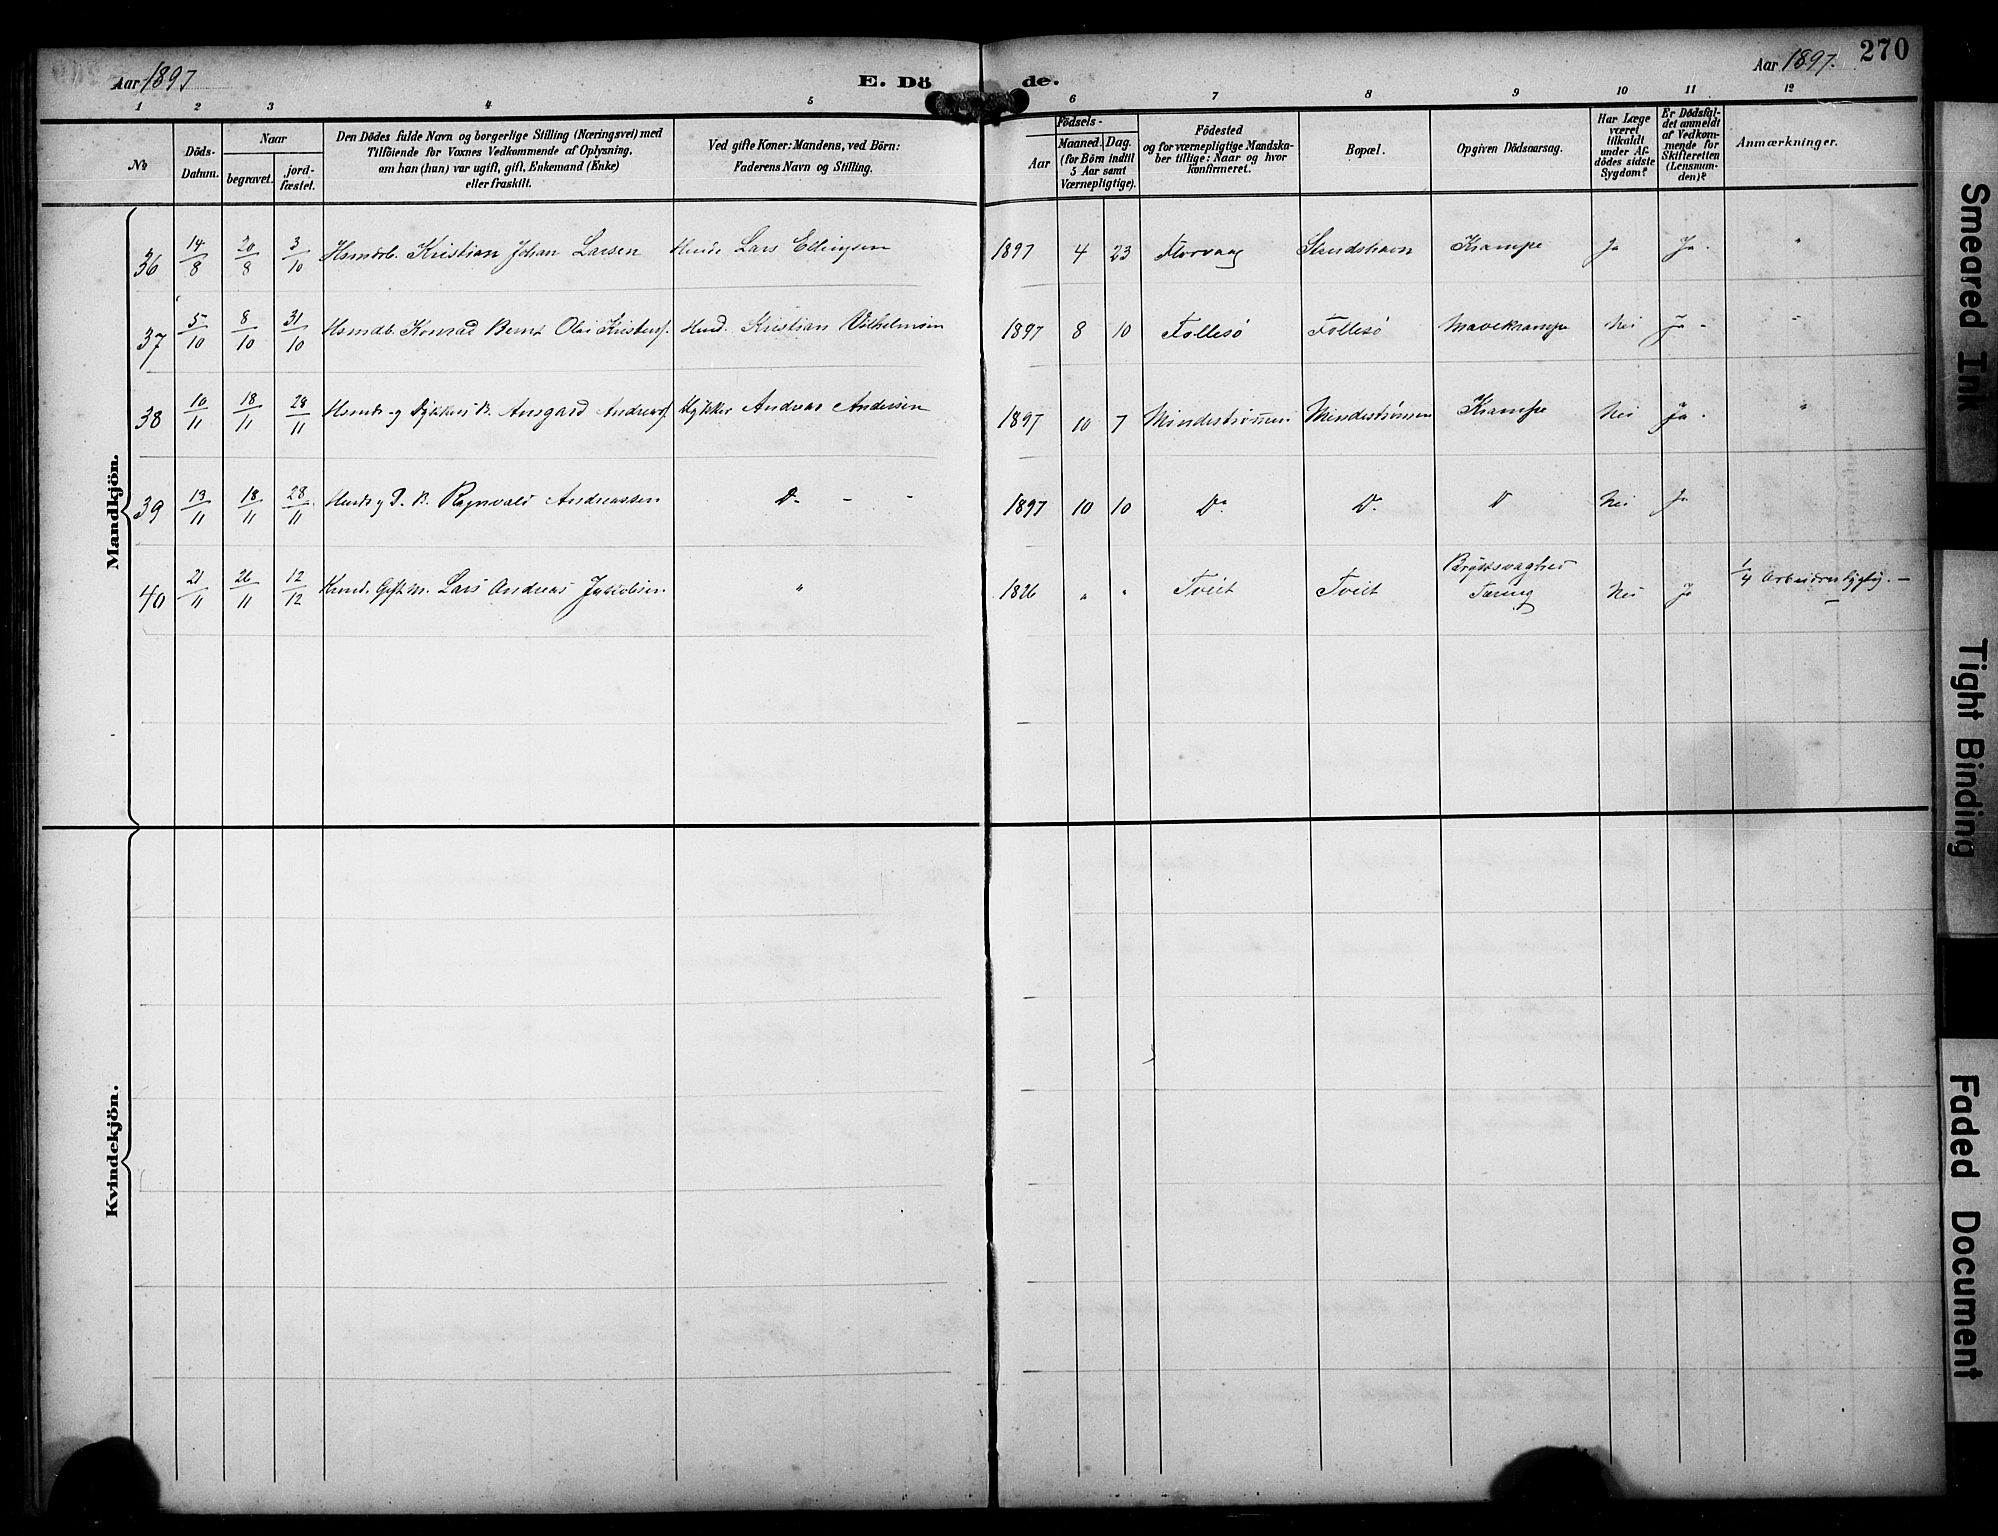 Aar 1897
E. Dö de.
Aar 1897.
270
1 2 3 4 5 6 7 8 9 10 11 12
№
Döds-
Datum.
Naar
begravet.
jord-
fæstet.
Den Dödes fulde Navn og borgerlige Stilling (Næringsvei) med
Tilföiende for Voxnes Vedkommende af Oplysning,
om han (hun) var ugift, gift, Enkemand (Enke)
eller fraskilt.
Ved gifte Koner: Mandens, ved Börn:
Faderens Navn og Stilling.
Födsels-
Aar
Maaned. Dag.
(for Börn indtil
5 Aar samt
Værnepligtige).
Födested
og for værnepligtige Mandska-
ber tillige: Naar og hvor
konfirmeret.
Bopæl.
Opgiven Dödsaarsag.
Har Læge
været
tilkaldt
under Af-
dödes sidste
Sygdom?
Er Dödsfal-
det anmeldt
af Vedkom-
mende for
Skifteretten
(Lensman-
den)?
Anmærkninger.
Mandkjön.
36 14/8 20/8 3/10 Hsmdsb. Kristian Johan Larsen Husmd. Lars Ellingsen 1897 4 23 Florvaag Strudshavn Krampe Ja Ja. "
37 5/10 8/10 31/10 Hsmdb. Konrad Bernt Olai Kristens. Husmd. Kristian Vilhelmsen 1897 8 10 Follesö Follesö Mavekrampe Nei Ja. "
38 10/11 18/11 28/11 Hsmds og B. Ansgard Andreas. Andreas Andersen 1897 10 7 Mindeströmmen Mindeströmmen Krampe Nei Ja. "
39 13/11 18/11 28/11 Husmds og D. B. Ragnvald Andreassen Do - - 1897 10 10 Do Do Do Nei Ja
40 21/11 26/11 12/12 Gift M. Lars Andreas Jakobsen " 1826 " " Tveit Tveit Brystsvaghed
Tæring Nei Ja 1/4 Arbeidsdygtig. —
Kvindekjön.
Smeared Ink
Tight Binding
Faded Document